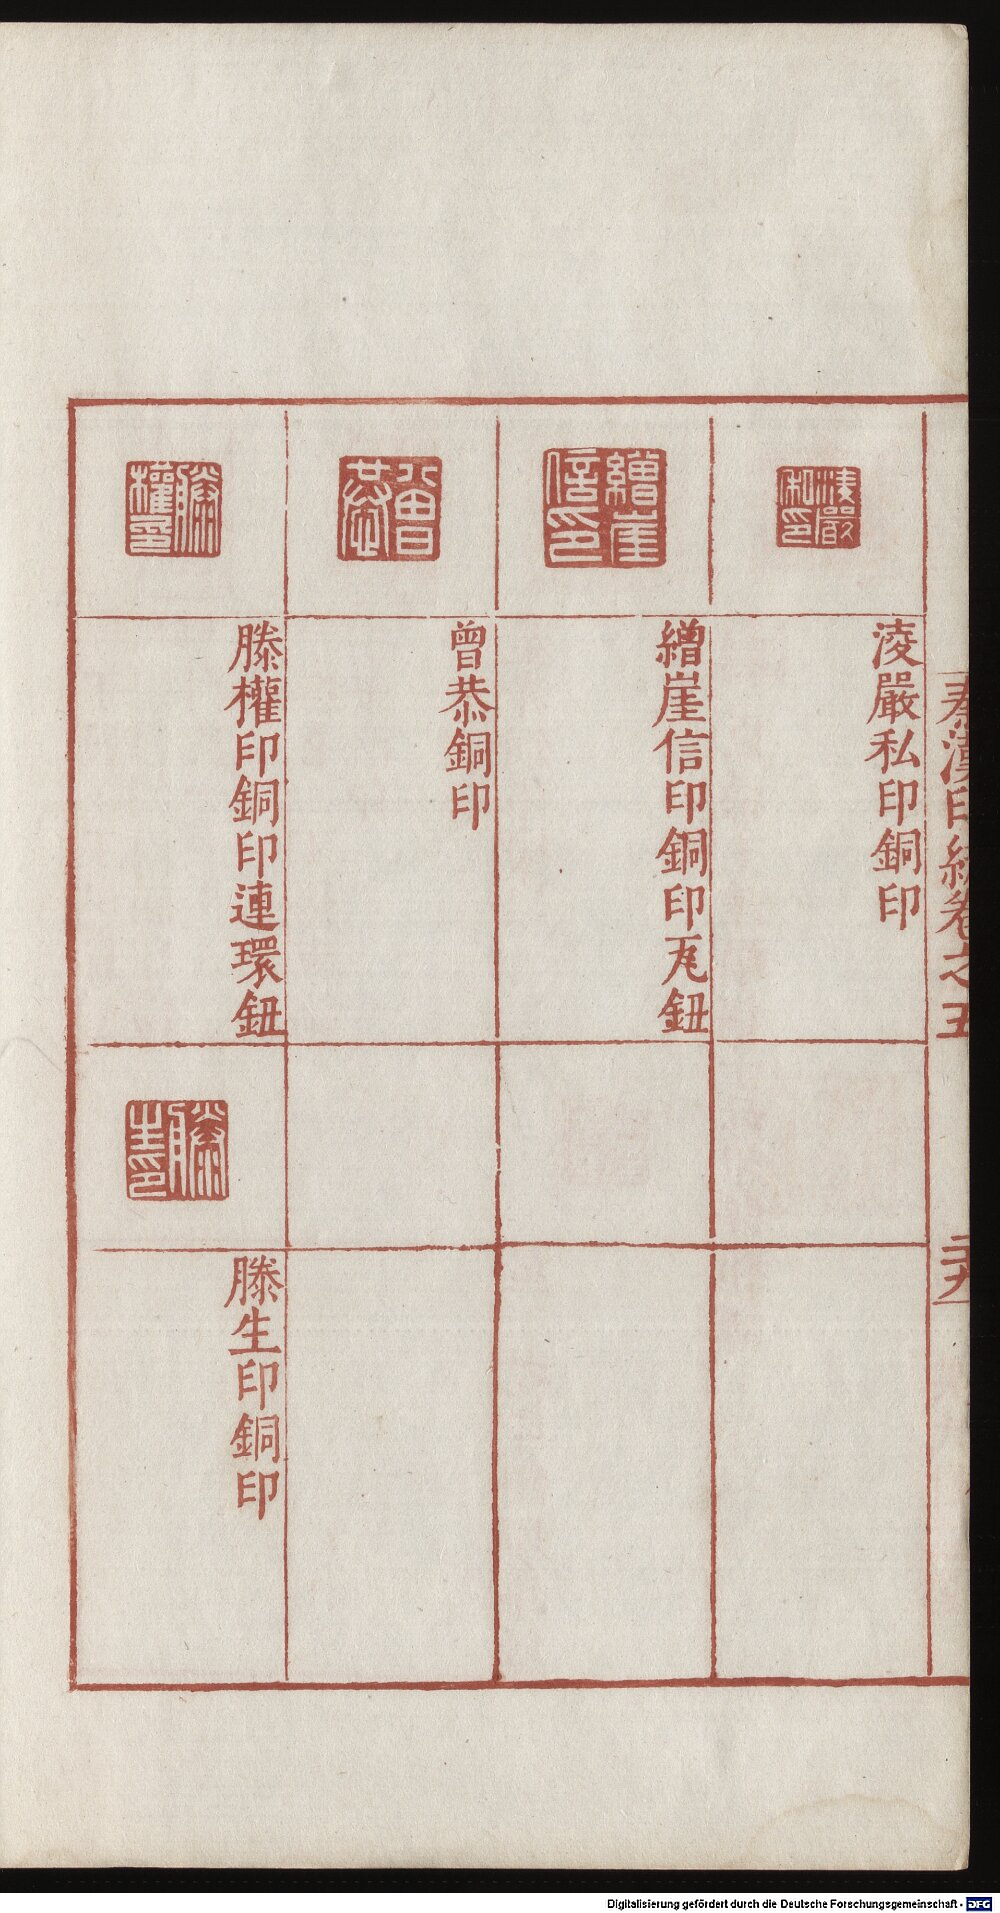 秦漢印統卷之五
二九
淩嚴私印
淩嚴私印銅印
繒崖信印
繒崖信印銅印瓦鈕
曾恭
曾恭銅印
滕權印
滕權印銅印連環鈕
滕生印
滕生印銅印
Digitalisierung gefördert durch die Deutsche Forschungsgemeinschaft - DFG